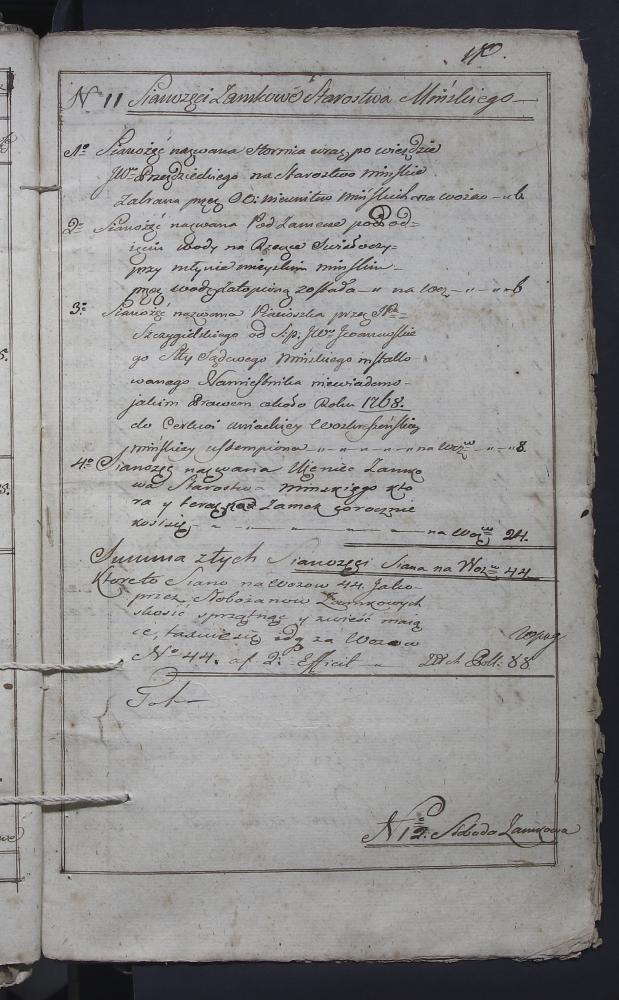 No 11 Sianozęci Zamkowe Starostwa Mińskiego
1o Sianożęć nazwana Hornia wraz po wieździe
JWo Przezdzieckiego na Starostwo mińskie
Zabrana przez OO: mińskich na wozow — 6
2o Sianożęć nazwana Pod Zamcze pod od-
ięciu wody na Rzece Swisłoczy
przy młynie mieyskim mińskim
przez wodę zatopioną została — na Woz — 6
3o Sianożęć nazwana przez JPa
Szczygielskiego od S:p: JWo Jwanowskie
go Stty Sądowego Mińskiego installo
wanego Namiestnika niewiadomo
jakim Prawem około Roku 1768.
do Cerkwi uniackiey
mińskiey ustempiona — na Wozw — 8.
4o Sianożęć nazwana Ujeniec Zamko
wa Starostwa Minskiego któ
ra y teraz na Zamek corocznie
kosi się — na Wozw 24.
Summa złtych Sianozęci Siana na Wozw 44
Ktore to Siano na wozow 44. Jako
przez Słobożanow Zamkowych
skosić sprzątnąć y zwieść maią
ce, taxuie się idą za Wozow
No 44. af 2. Efficit — Złtch Poll: 88
Tot
No 12. Słoboda Zamkowa